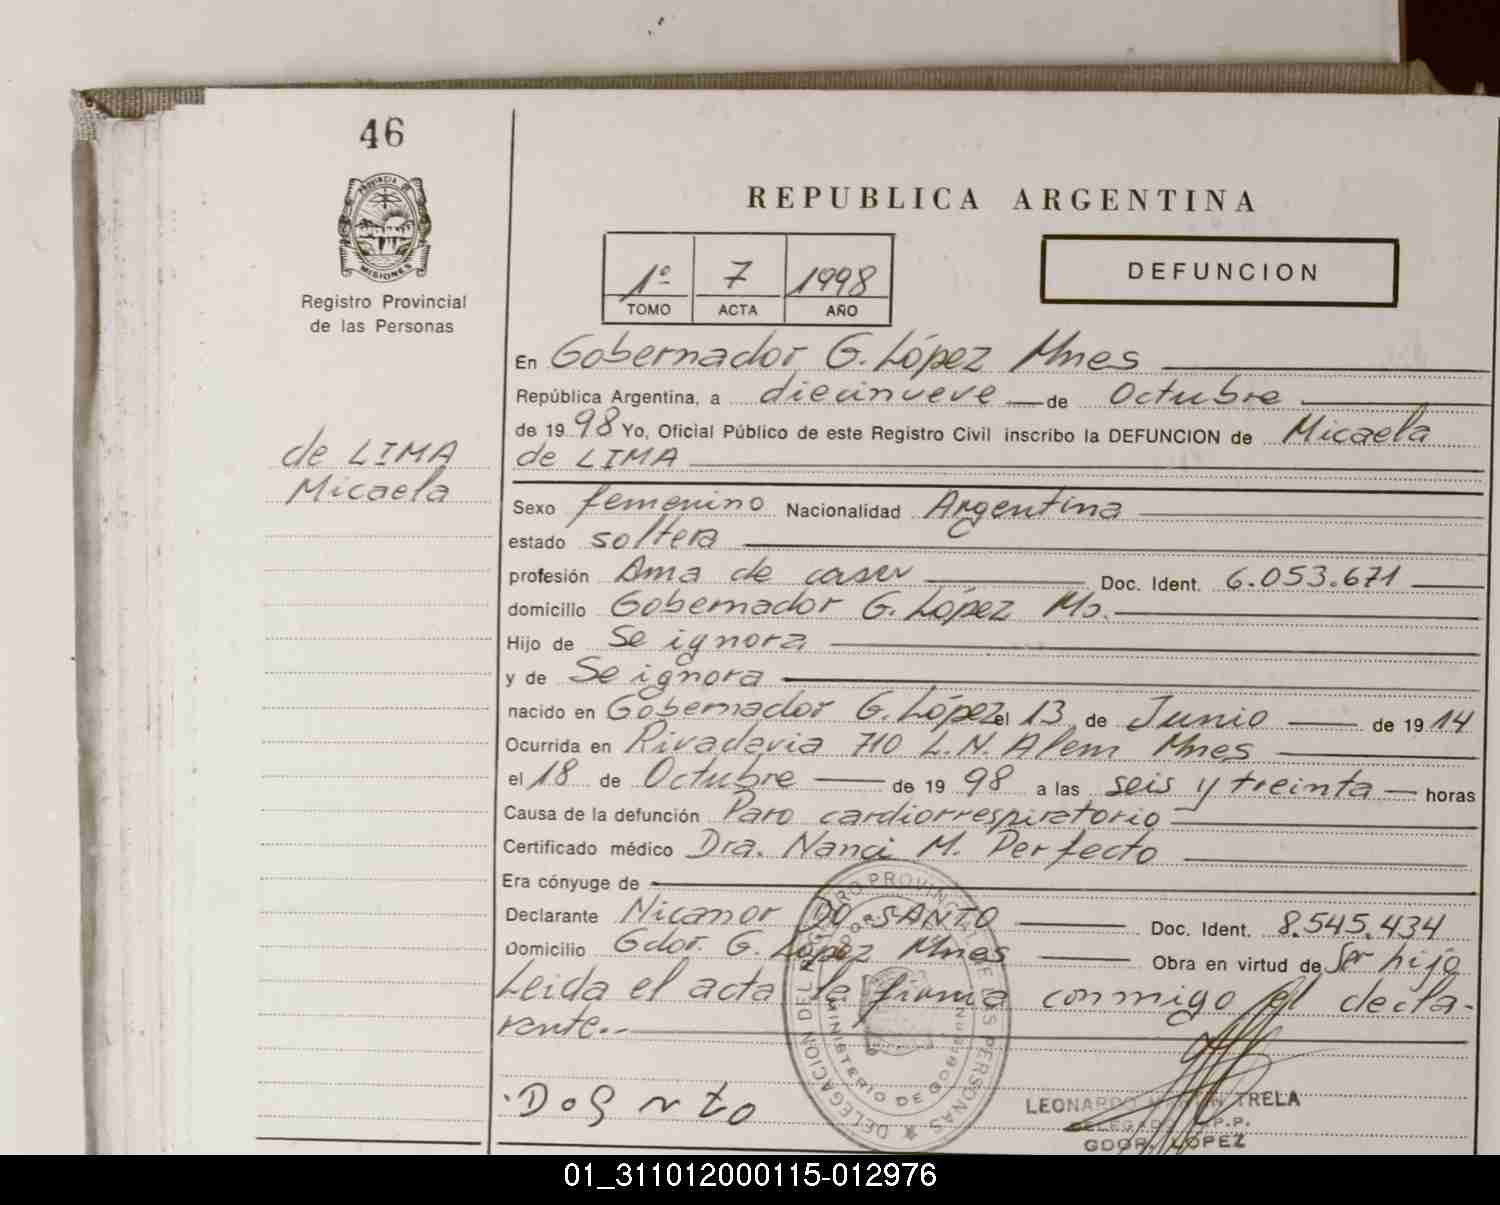 46
REPUBLICA ARGENTINA
PROVINCIA DE
MISIONES
Registro Provincial
de las Personas
1º 7 1998
TOMO ACTA AÑO
DEFUNCION
En Gobernador G. López Mnes
República Argentina, a diecinueve de Octubre
de 1998 Yo, Oficial Público de este Registro Civil inscribo la DEFUNCION de Micaela
de LIMA
de LIMA
Micaela
Sexo femenino Nacionalidad Argentina
estado soltera
profesión Ama de casa Doc. Ident. 6.053.671
domicilio Gobernador G. López Ms.
Hijo de Se ignora
y de Se ignora
nacido en Gobernador G. López el 13 de Junio de 1914
Ocurrida en Rivadavia 710 L.N. Alem Mnes
el 18 de Octubre de 1998 a las seis y treinta horas
Causa de la defunción Paro cardiorrespiratorio
Certificado médico Dra. Nanci M. Perfecto
Era cónyuge de
Declarante Nicanor DO SANTO Doc. Ident. 8.545.434
Domicilio Gdor. G. López Mnes Obra en virtud de Ser hijo
Leida el acta la firma conmigo el decla-
rante..
DELEGACION DEL REGISTRO PROVINCIAL DE LAS PERSONAS
MINISTERIO DE GOBIERNO
LEONARDO TRELA
DELEGADO R.P.P.
GDOR. LÓPEZ
01_311012000115-012976